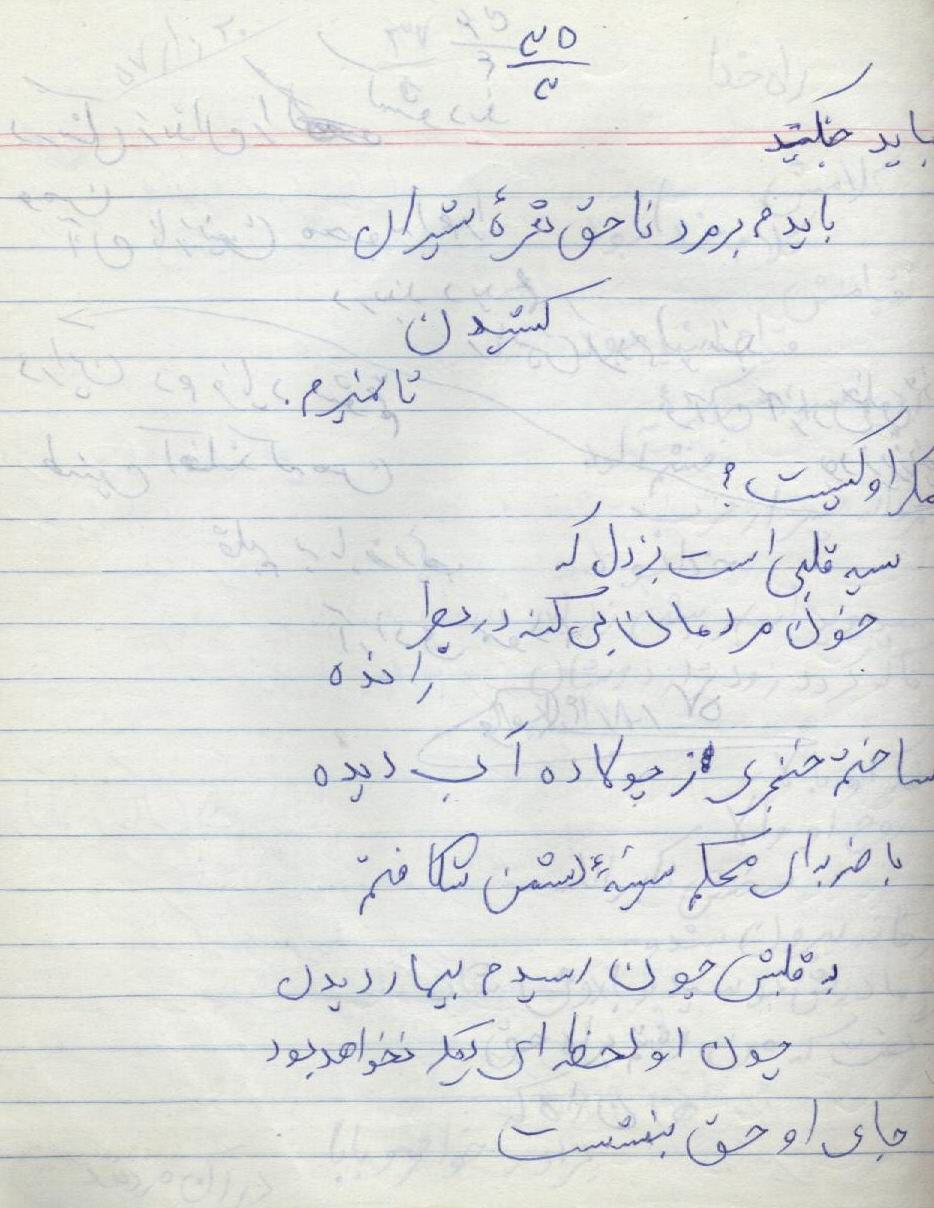 ۲۵
۲
باید جنگید
بایدم بر مرد ناحق نعرهٔ شیران
کشیدن
تا نمیرم.
مگر او کیست؟
سیه قلبی است بزدل که
خون مردمان می کند در
رانده
ساختم خنجری از پولاده آب دیده
با ضربه‌ای محکم سینهٔ دشمن شکافتم
به قلبش چون رسیدم بیمار دیدن
چون او لحظه ای دیگر نخواهد بود
جای او حق بنشست